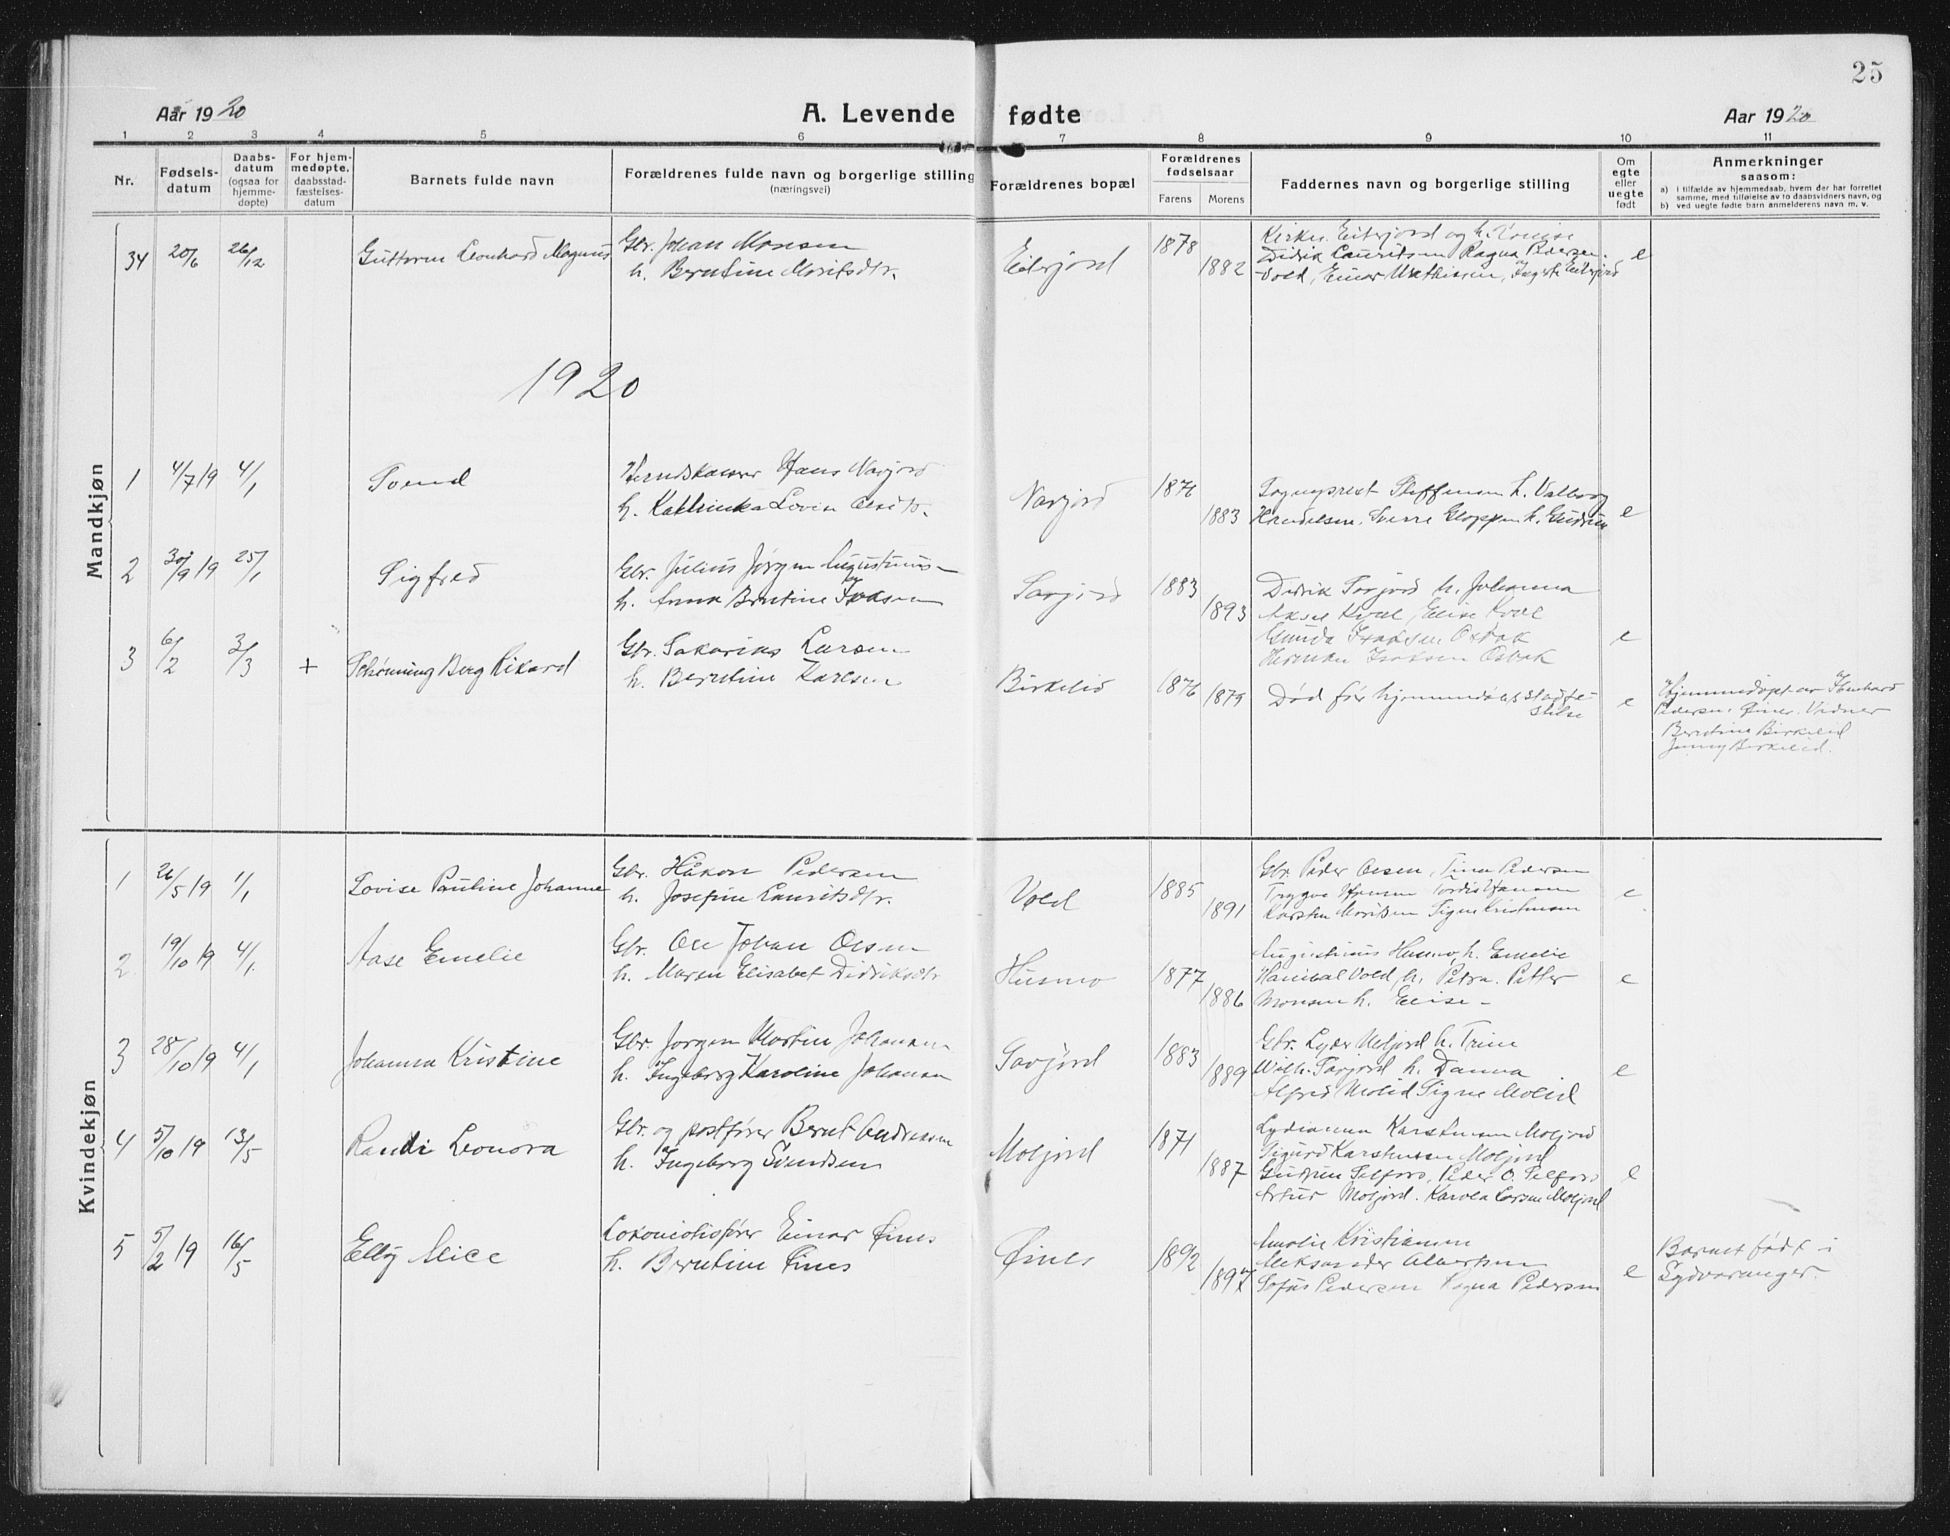 25
Aar 1920
A. Levende fødte
Aar 1920
1 2 3 4 5 6 7 8 9 10 11
Nr.
Fødsels-
datum
Daabs-
datum
(ogsaa for
hjemme-
døpte)
For hjem-
medøpte.
daabsstad-
fæstelses-
datum
Barnets fulde navn
Forældrenes fulde navn og borgerlige stilling
(næringsvei)
Forældrenes bopæl
Forældrenes
fødselsaar
Farens Morens
Faddernes navn og borgerlige stilling
Om
egte
eller
uegte
født
Anmerkninger
saasom:
a) i tilfælde av hjemmedaab, hvem der har forrettet
samme, med tilføielse av to daabsvidners navn, og
b) ved uegte fødte barn anmelderens navn m. v.
Mandkjøn
34 20/6 26/12 Guttorm Leonhard Magnus
Gbr. Johan Monsen
h. Berntine Moritsdtr.
Eiterjord 1878 1882
Kirkes. Eiterjord og h. Lovise
Didrik Lauritsen Ragna Pedersen
Vold, Einar Mathissen, Eiterjord
e
1920
1 4/7 19 4/1 Svend
Hans Navjord
h. Kathrinka Lovise
Navjord 1883
Sogneprest Steffensen h. Valborg
Sverre Gloppen h. Gudrun
e
2 30/9 19 25/1 Sigfred
Gbr. Julius Jørgen Augustinus
h. Anna Berntine Isaksen
Sørjord 1883 1893
Didrik Sørjord h. Johanna
Aksel Kvæl, Elise Kvæl
Gunda Isaksen Osbak
Herman Isaksen Osbak
e
3 6/2 2/3 + Schønning Berg Rikard
Gbr. Sakarias Larsen
h. Berntine Karlsen
Birkelid 1876 1879
Død før hjemmedaabs stadfe-
stelse
e
Hjemmedøpt av
Pedersen.
Berntine Birkelid
Jenny Birkelid.
Kvindekjøn
1 26/5 19 1/1 Lovise Pauline Johanne
Gbr. Håkon Pedersen
h. Josefine Lauritsdtr.
Vold 1885 1891
Gbr. Peder Olsen, Tina Pedersen
Trygve Hansen Tordis Hansen
Karsten Moritsen Signe Kristensen
e
2 19/10 19 4/1. Aase Emelie
Gbr. Ole Johan Olsen
h. Maren Elisabet Didriksdtr
Husmo 1877 1886
Augustinus Husmo, h. Emelie
Hanibal Vold, h. Petra. Petter
Monsen h. Elise -
e
3 28/10 19 4/1 Johanna Kristine
Gbr. Jørgen Martin Johansen
h. Ingeborg Karoline Johansen
Sørjord 1883 1889
Gbr. Lyder Meljord h. Trine
Wilh. Sørjord h. Danna
Alfred Molid Signe Molid
e
4 5/10 19 13/5 Randi Leonora
Gbr. og postfører Bernt Andreassen
h. Ingeborg Svendsen
Moljord 1871 1887
Lydianna Karstensen Moljord
Sigurd Karstensen Moljord
Gudrun Selfors, Peder O. Selfors
Artur Moljord. Karola Larsen Moljord
e
5 5/2 19 16/5 Elly Alice
Lokomotivfører Einar Øines
h. Berntine Øines
Øines 1892 1897
Amalie Kristiansen
Aleksander Albertsen
Sofus Pedersen Ragna Pedersen
e
Barnet født i
Sydvaranger.